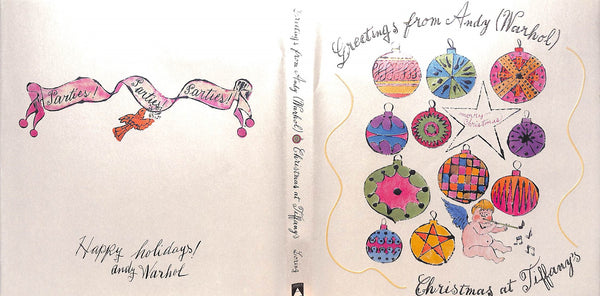 Parties! Parties! Parties!
Happy holidays!
andy Warhol
Greetings from Andy (Warhol) Christmas at Tiffany's Loring
Greetings from Andy (Warhol)
merry
Christmas
Christmas at Tiffany's